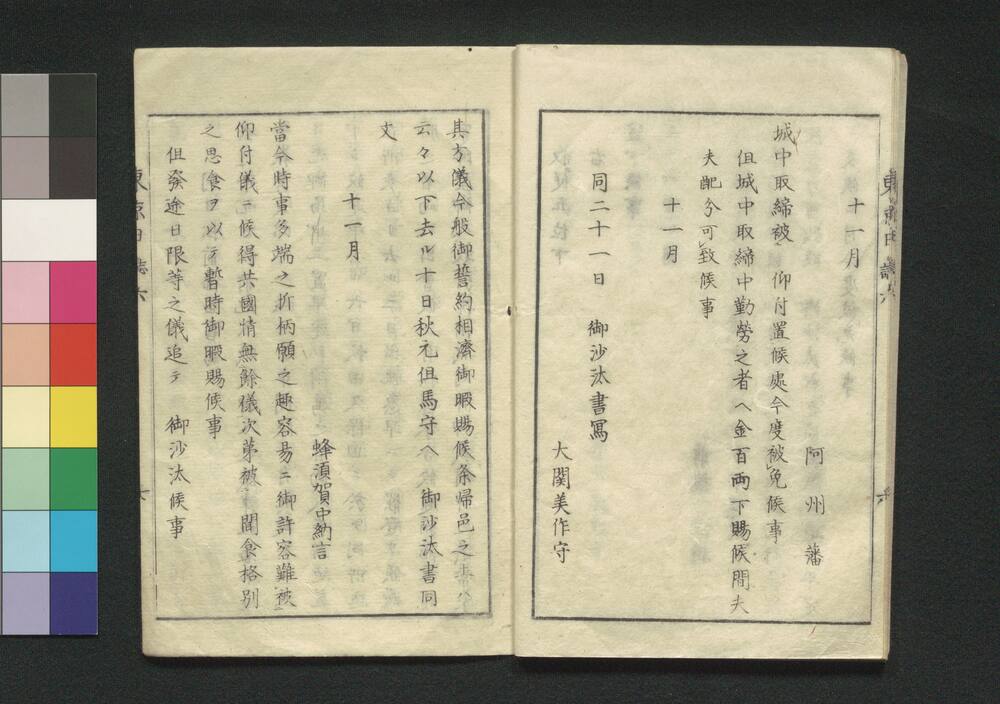 十一月
阿州藩
城中取締被 仰付置候處今度被免候事
但城中取締中勤勞之者へ金百両下賜候間夫
夫配分可致候事
十一月
同二十一日 御沙汰書寫
大関美作守
其方儀今般御誓約相濟御暇賜候条帰邑之上ハ
云々以下去ル十日秋元但馬守へ 御沙汰書同
文
十一月
蜂須賀中納言
當今時事多端之折柄願之趣容易ニ御許容難被
仰付儀ニ候得共國情無餘儀次第被 聞食格別
之思食ヲ以テ暫時御暇賜候事
但發途日限等之儀追テ 御沙汰候事
東京日誌六